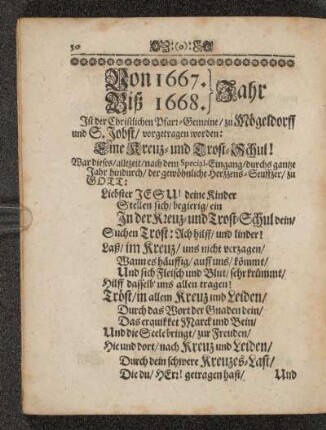 50
Von 1667. } Jahr
Biß 1668. }
Ist der Christlichen Pfarr-Gemeine / zu Mögeldorff
und S. Jobst / vorgetragen worden:
Eine Kreuz- und Trost-Schul!
War dieses / allezeit / nach dem Special-Eingang / durchs gantze
Jahr hindurch / der gewöhnliche Hertzens-Seufftzer / zu
GOTT:
Liebster JESU! deine Kinder
Stellen sich / begierig / ein
In der Kreuz- und Trost-Schul dein /
Suchen Trost: Ach hilff / und linder!
Laß / im Kreuz / uns nicht verzagen /
Wann es häuffig / auff uns / kömmt /
Und sich Fleisch und Blut / sehr krümmt /
Hilff dasselb' uns allen tragen!
Tröst / in allem Kreuz und Leiden /
Durch das Wort der Gnaden dein /
Das erquikket Marck und Bein /
Und die Seele bringt / zur Freuden /
Hie und dort / nach Kreuz und Leiden /
Durch dein schwere Kreuzes-Last /
Die du / HErr! getragen hast / Und